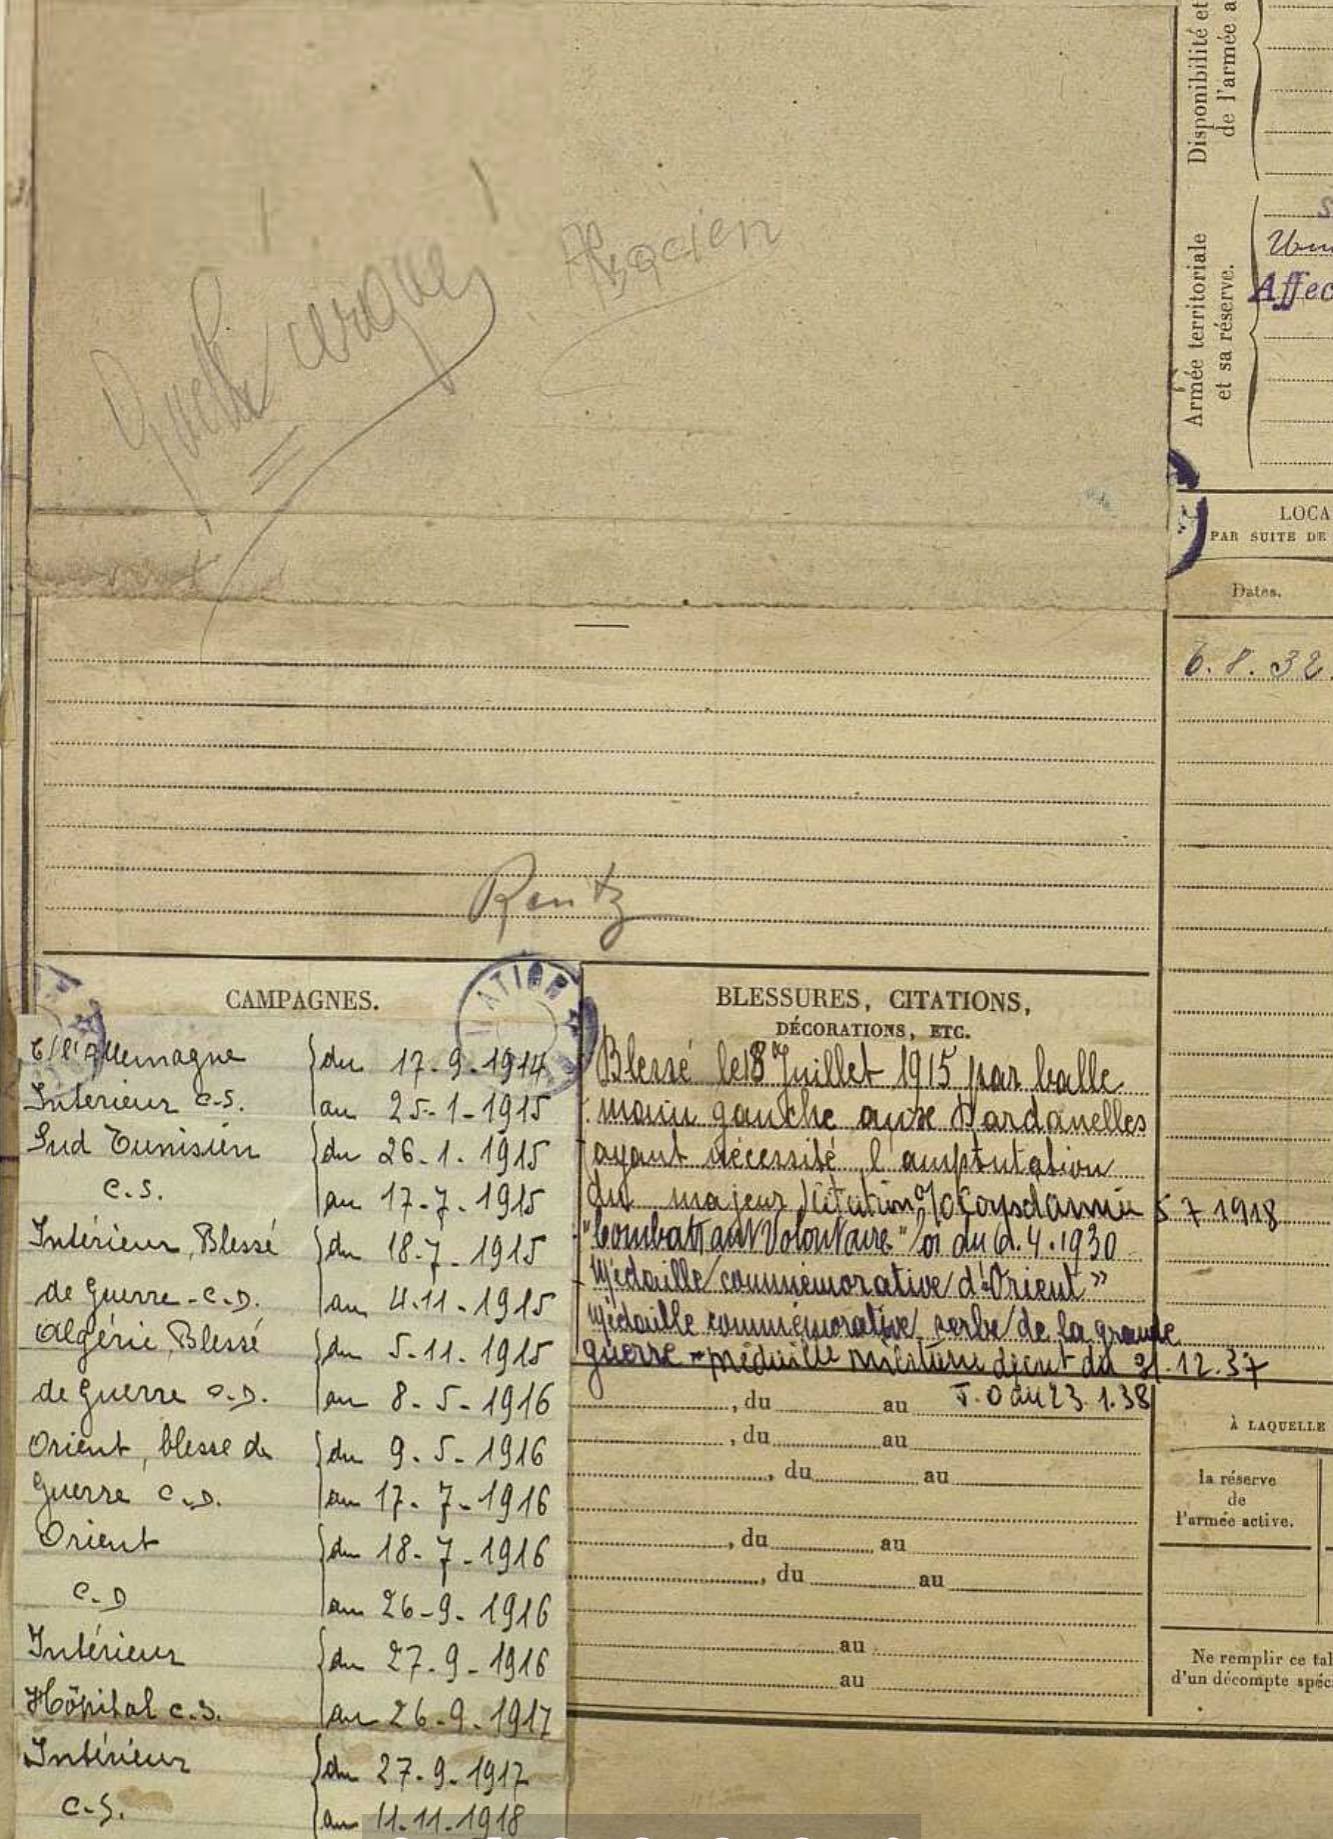 Alsacien
Rentz
CAMPAGNES.
C/ l'Allemagne du 17-9-1914
Intérieur C.S. au 25-1-1915
Sud Tunisien du 26.1.1915
C.S. au 17-7-1915
Intérieur, Blessé du 18-7-1915
de Guerre-C.D. au 4.11-1915
Algérie, Blessé du 5-11.1915
de Guerre C.D. au 8-5-1916
Orient, blessé de du 9.5-1916
Guerre C.D. au 17-7-1916
Orient du 18-7-1916
C.D au 26-9-1916
Intérieur du 27-9-1916
Hôpital C.S. au 26-9-1917
Intérieur du 27-9-1917
C.S. au 11-11-1918
BLESSURES, CITATIONS,
DÉCORATIONS, ETC.
Blessé le 18 Juillet 1915 par balle
main gauche aux Dardanelles
ayant nécessité l'amputation
du majeur Citation Corps d'armée 5 7 1918
"Combattant Volontaire" 4.1930
Médaille commémorative d'Orient"
Médaille commémorative serbe de la grande
guerre - médaille militaire décret du 21.12.37
J.O du 23.1.38
, du au
, du au
, du au
, du au
, du au
au
au
Disponibilité et
de l'armée a
Armée territoriale
et sa réserve.
Affec
LOCA
PAR SUITE DE
Dates.
6.8.32.
À LAQUELLE
la réserve
de
l'armée active.
Ne remplir ce tal
d'un décompte spéc